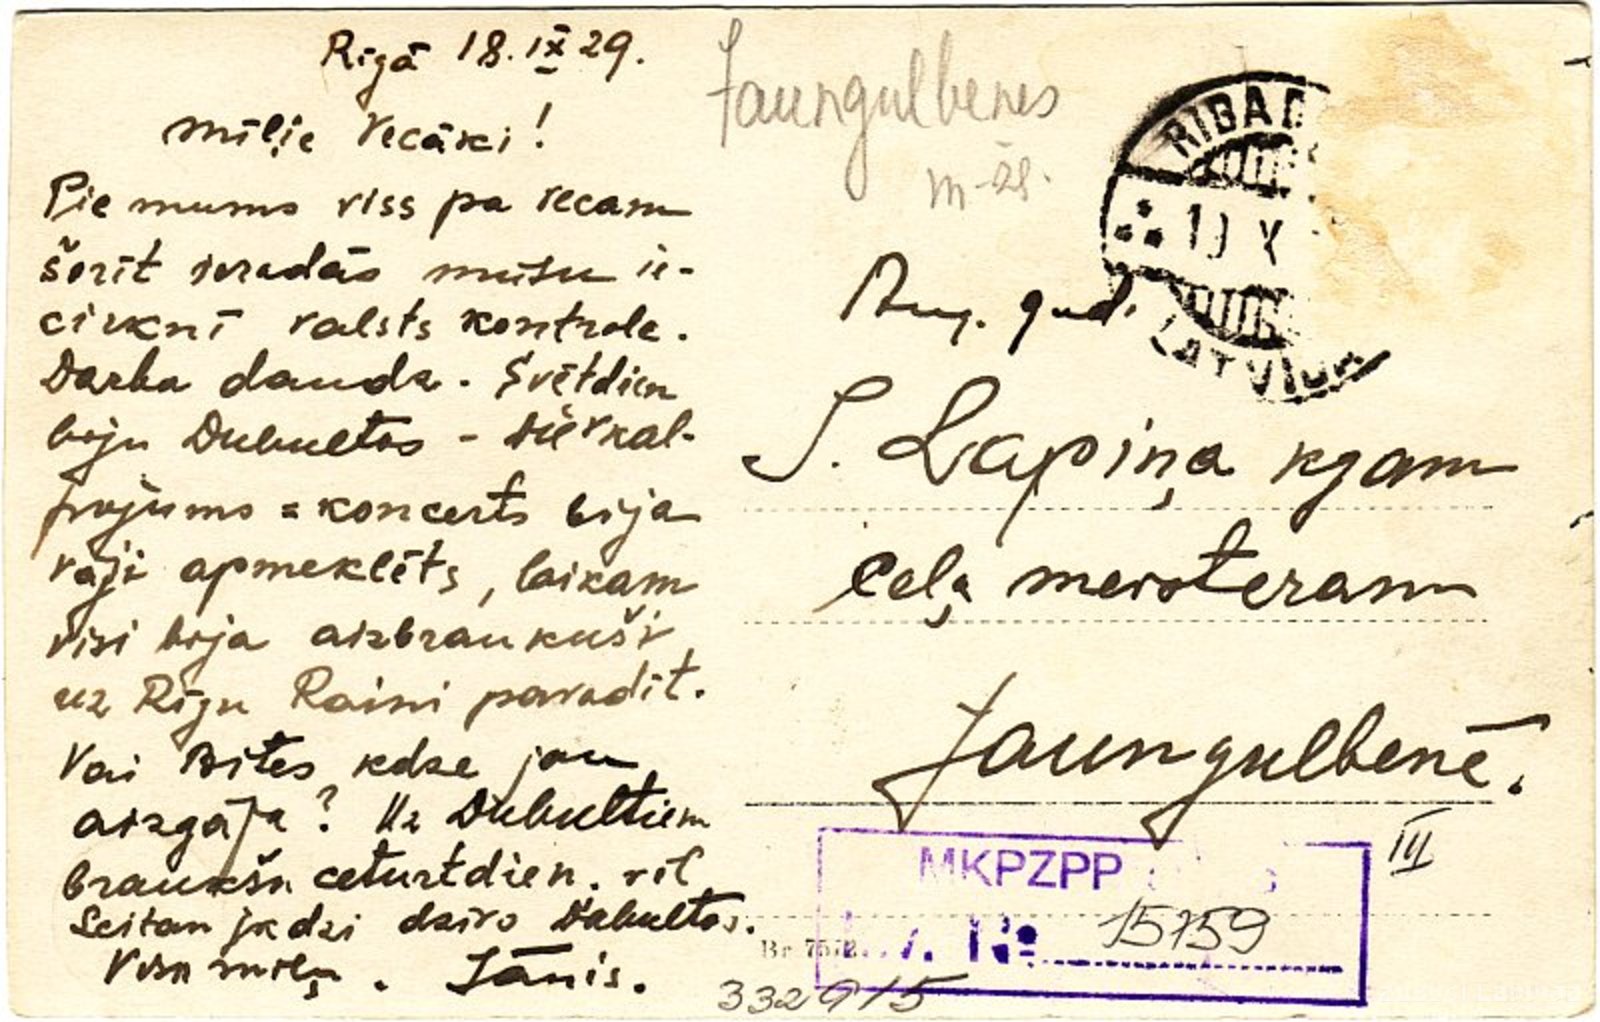 Rīgā 18.IX 29.
Mīļie Vecāki!
Pie mums viss pa vecam
šorīt ieradās mūsu ie-
cirknī valsts kontrole.
Darba daudz. Svētdien
biju Dubultos - Dievkal-
pojums = koncerts bija
vāji apmeklēts, laikam
visi bija aizbraukuši
uz Rīgu Raini pavadīt.
Vai Bites kdze jau
aizgāja? Uz Dubultiem
braukšu ceturtdien. vēl
Seitan jkdzi dzīvo Dubultos.
Visu miļu. Jānis.
Jaungulbenes
m-āj.
RIGA
19 X
LATVIJA
Aug. god.
J. Lapiņa kgam
ceļa meisteram
Jaungulbenē.
III
MKPZPP
No 15759
Br 7572
3329/5